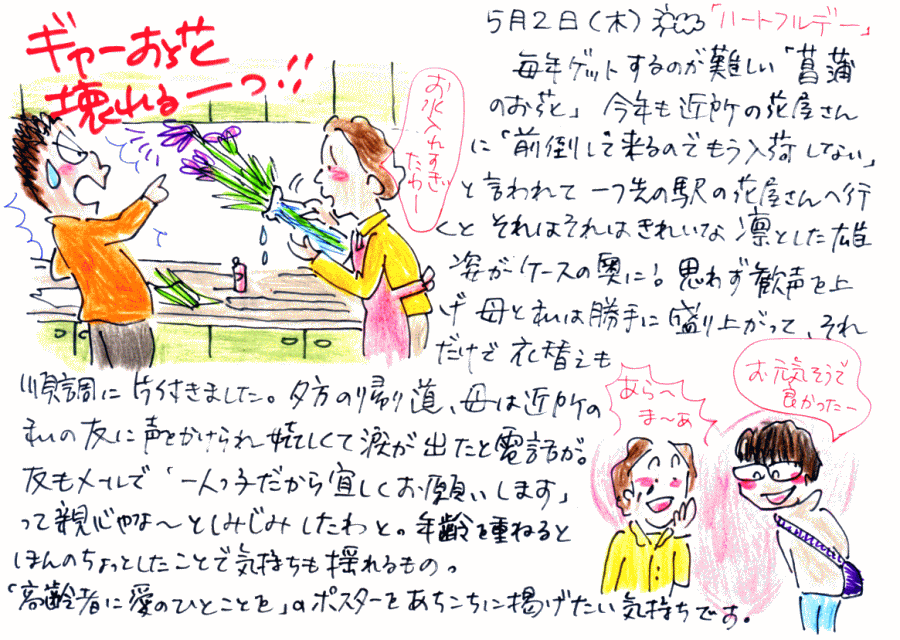 ギャーお花
壊れるーっ!!
お水入れすぎ
たわー
5月2日(木)「ハートフルデー」
毎年ゲットするのが難しい「菖蒲
のお花」今年も近所の花屋さん
に「前倒しで来るのでもう入荷しない」
と言われて一つ先の駅の花屋さんへ行
くとそれはそれはきれいな凛とした雄
姿がケースの奥に!思わず歓声を上
げ母と私は勝手に盛り上がって、それ
だけで衣替えも
順調に片付きました。夕方の帰り道、母は近所の
私の友に声をかけられ嬉しくて涙が出たと電話が。
友もメールで「一人っ子だから宜しくお願いします」
って親じゃな〜としみじみしたわと。年齢を重ねると
ほんのちょっとしたことで気持ちも揺れるもの。
「高齢者に愛のひとことを」のポスターをあちこちに掲げたい気持ちです。
あらへ
ま〜ぁ
お元気そうで
良かったー